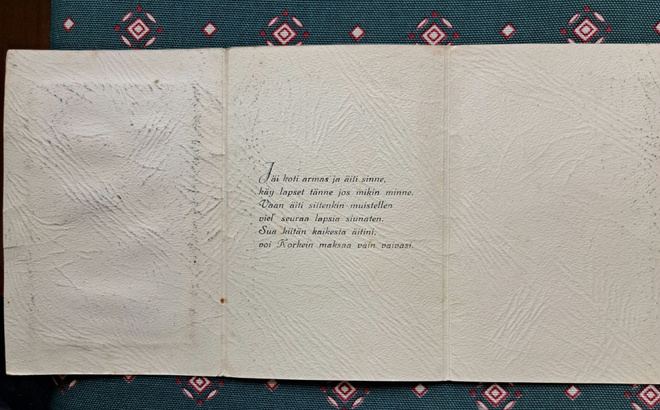 Jäi koti armas ja äiti sinne,
käy lapset tänne jos mikin minne.
Vaan äiti siitenkin muistellen
viel' seuraa lapsia siunaten.
Sua kiitän kaikesta äitini,
voi Korkein maksaa vain vaivasi.